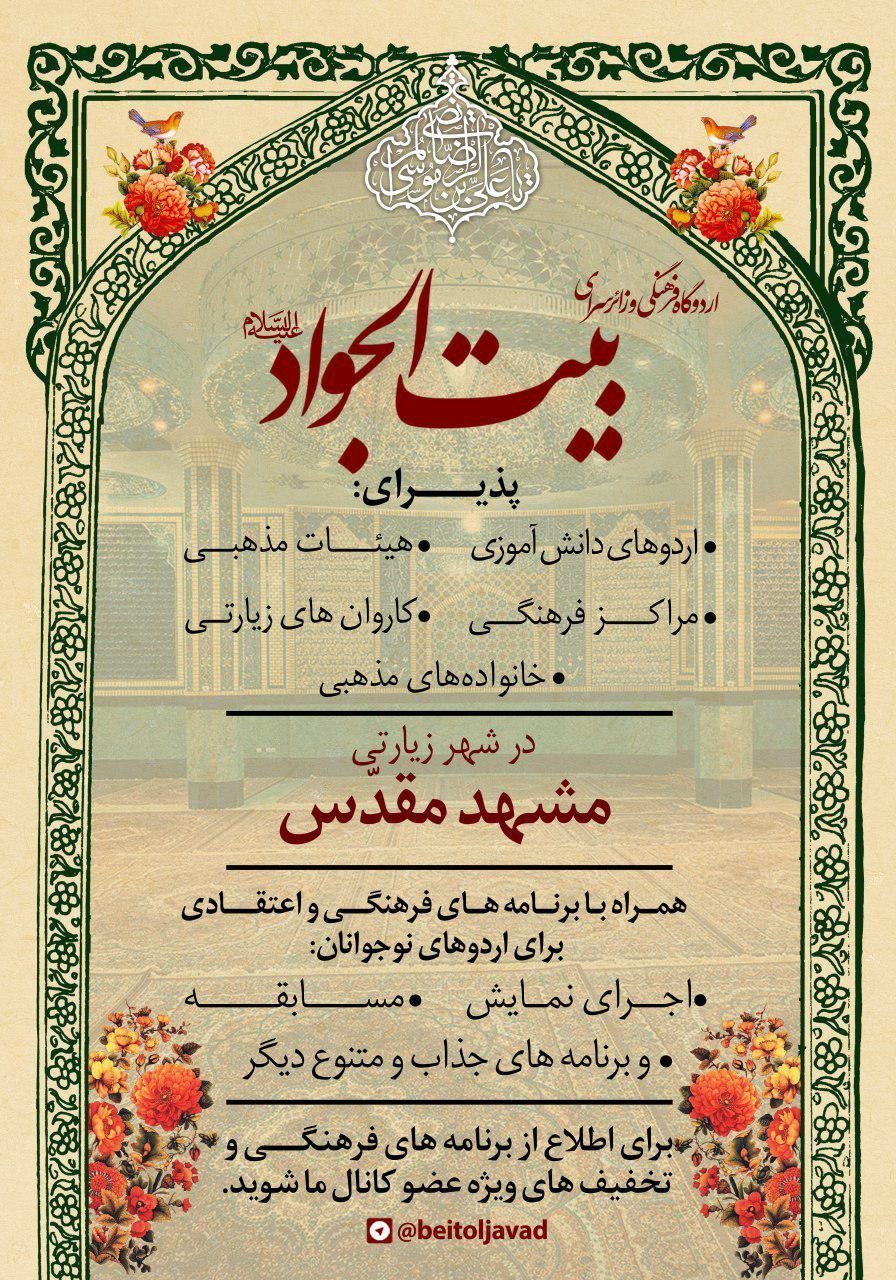 یا علی بن موسی الرضا المرتضی
اردوگاه فرهنگی و زائرسرای
بیت الجواد علیه السلام
پذیرای:
• اردوهای دانش آموزی • هیئات مذهبی
• مراکز فرهنگی • کاروان های زیارتی
• خانواده‌های مذهبی
در شهر زیارتی
مشهد مقدّس
همراه با برنامه های فرهنگی و اعتقادی
برای اردوهای نوجوانان:
• اجرای نمایش • مسابقه
• و برنامه های جذاب و متنوع دیگر
برای اطلاع از برنامه های فرهنگی و
تخفیف های ویژه عضو کانال ما شوید.
@beitoljavad